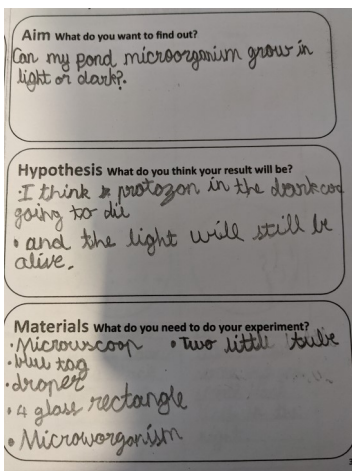 Aim What do you want to find out?
Can my pond microorganism grow in
light or dark?.
Hypothesis What do you think your result will be?
• I think protozon in the dark
going to die
• and the light will still be
alive.
Materials What do you need to do your experiment?
• Microuscoop • Two little tube
• blue tag
• droper
• 4 glass rectangle
• Microworganism